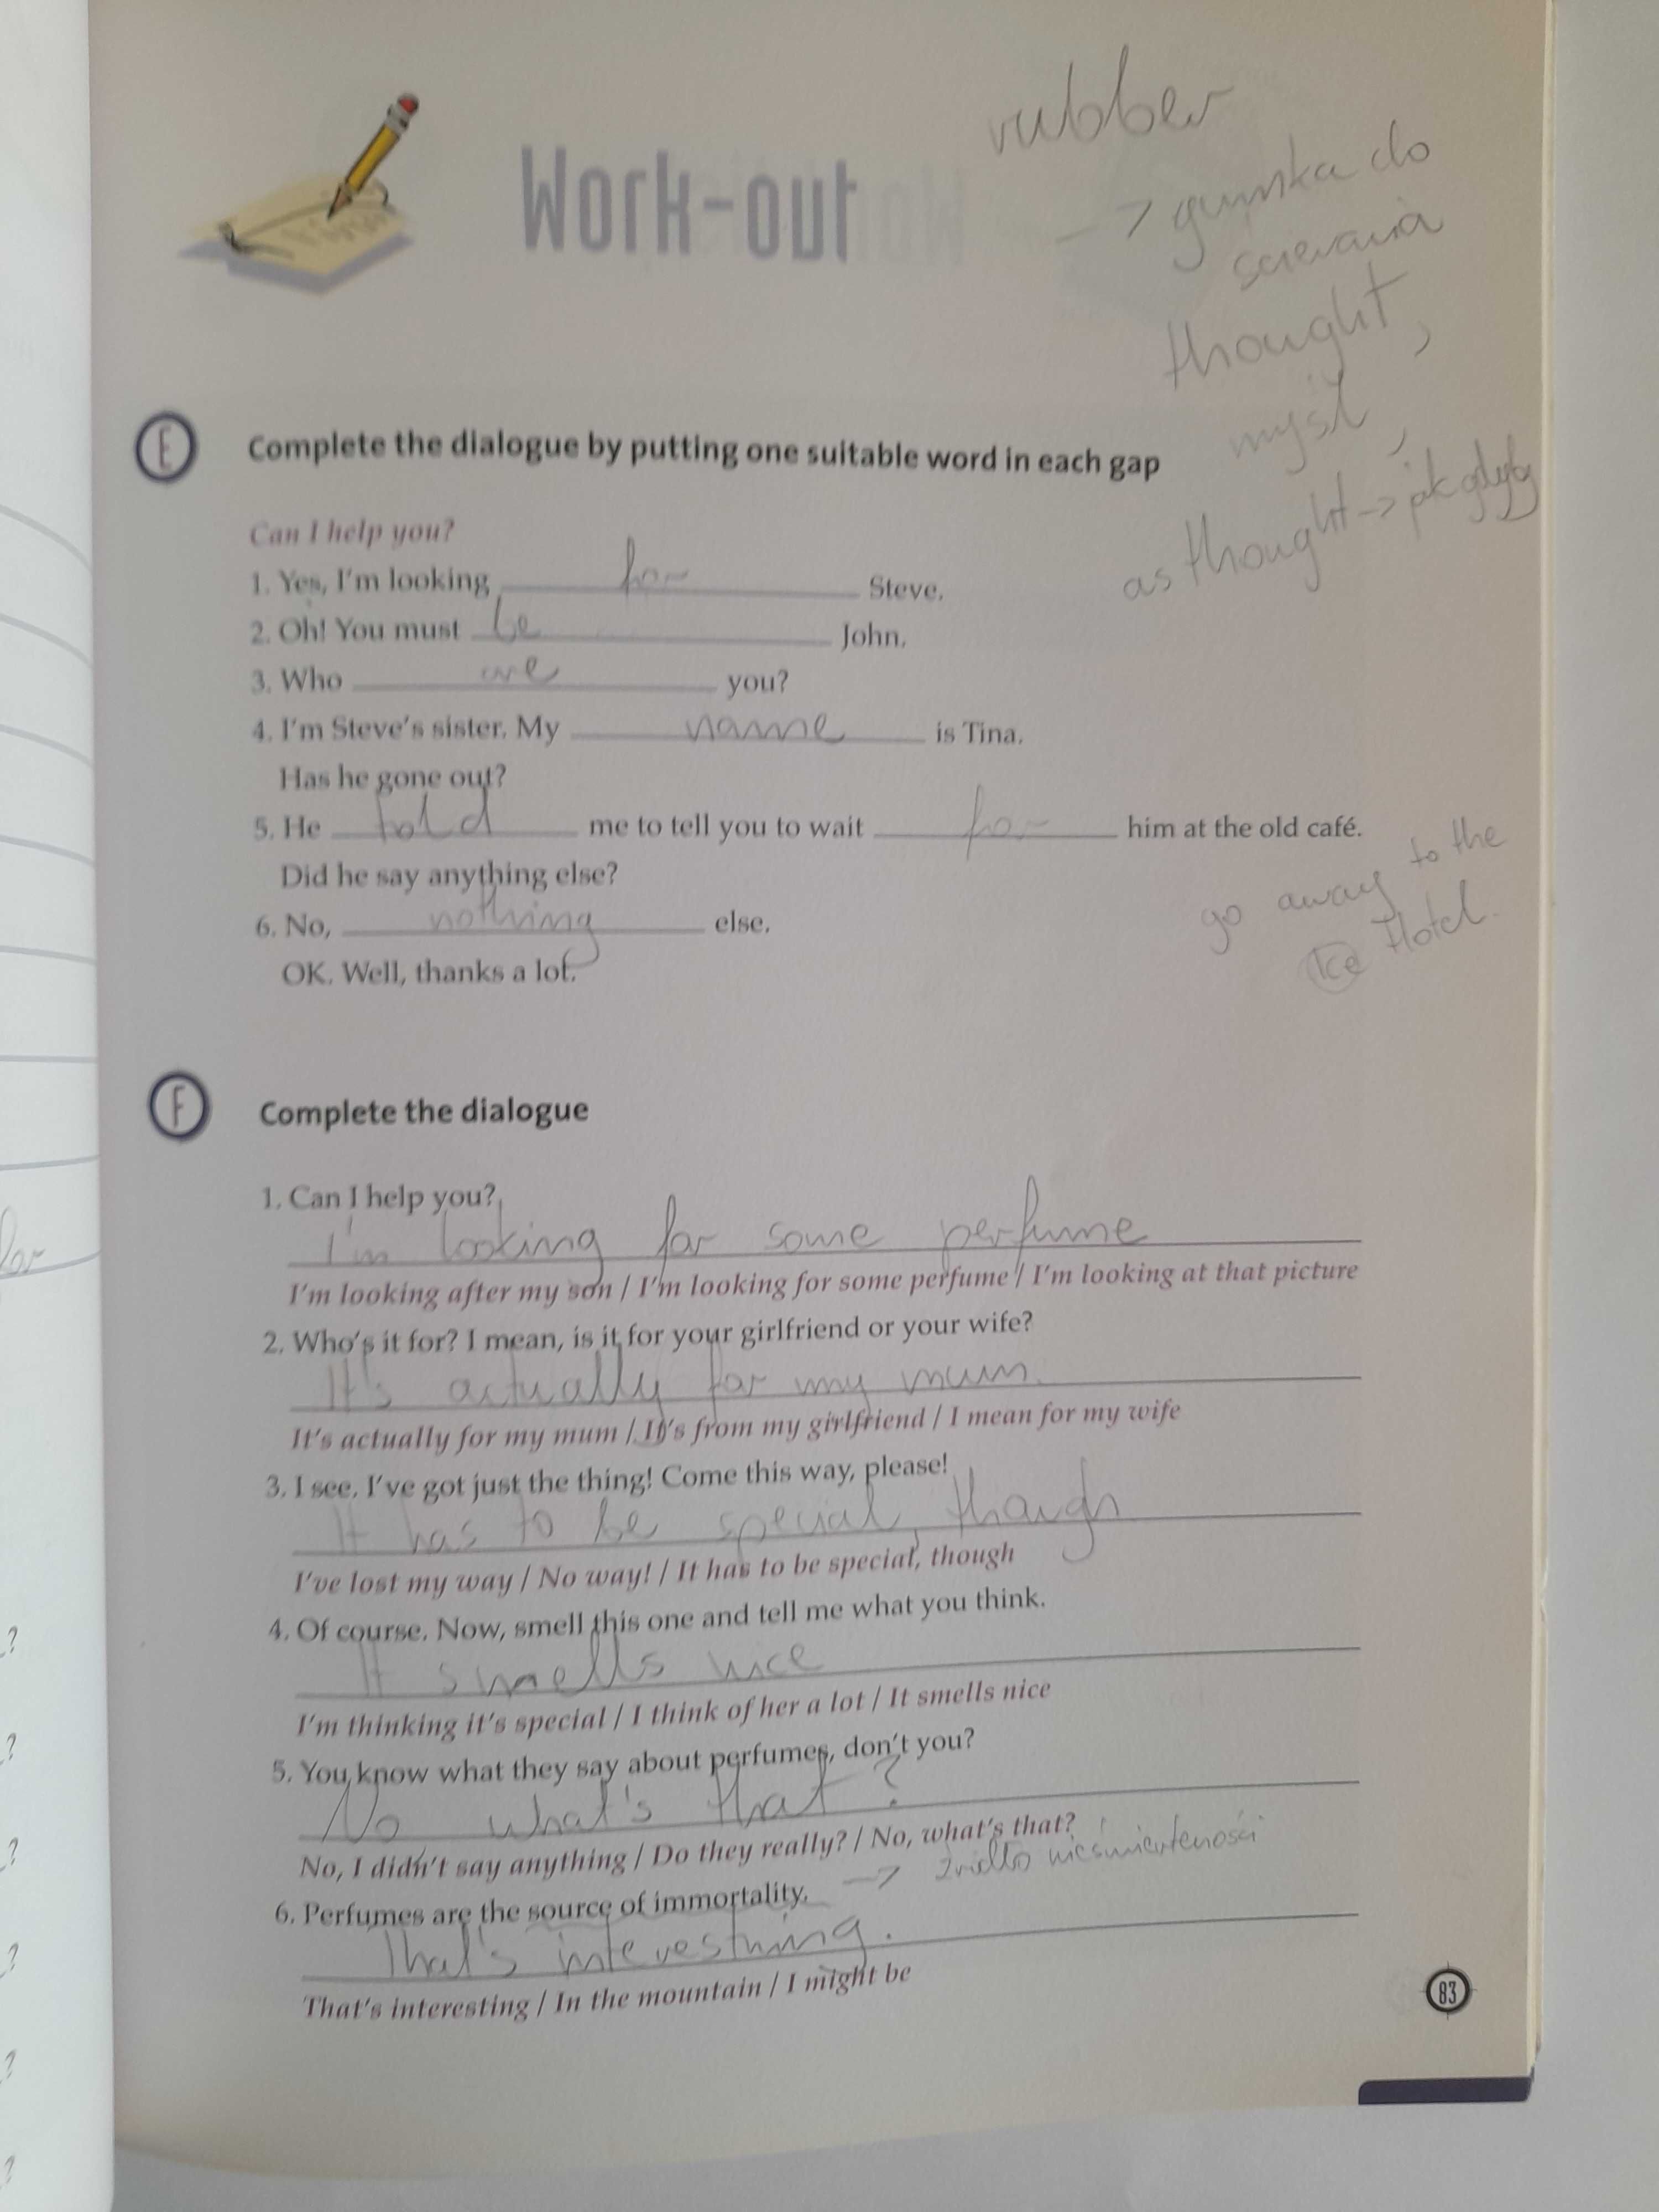 rubber
Work-out
-> gumka do
scierania
thought,
myśl,
as thought -> jak gdyby
E Complete the dialogue by putting one suitable word in each gap
Can I help you?
1. Yes, I'm looking for Steve.
2. Oh! You must be John.
3. Who are you?
4. I'm Steve's sister. My name is Tina.
Has he gone out?
5. He told me to tell you to wait for him at the old café.
Did he say anything else?
6. No, nothing else.
OK. Well, thanks a lot.
go away to the
Ice Hotel.
F Complete the dialogue
1. Can I help you?
I'm looking for some perfume
I'm looking after my son / I'm looking for some perfume / I'm looking at that picture
2. Who's it for? I mean, is it for your girlfriend or your wife?
It's actually for my mum.
It's actually for my mum / It's from my girlfriend / I mean for my wife
3. I see. I've got just the thing! Come this way, please!
It has to be special, though
I've lost my way / No way! / It has to be special, though
4. Of course. Now, smell this one and tell me what you think.
It smells nice
I'm thinking it's special / I think of her a lot / It smells nice
5. You know what they say about perfumes, don't you?
No what's that?
No, I didn't say anything / Do they really? / No, what's that?
6. Perfumes are the source of immortality. -> źródło nieśmiertelności
That's interesthing.
That's interesting / In the mountain / I might be
83